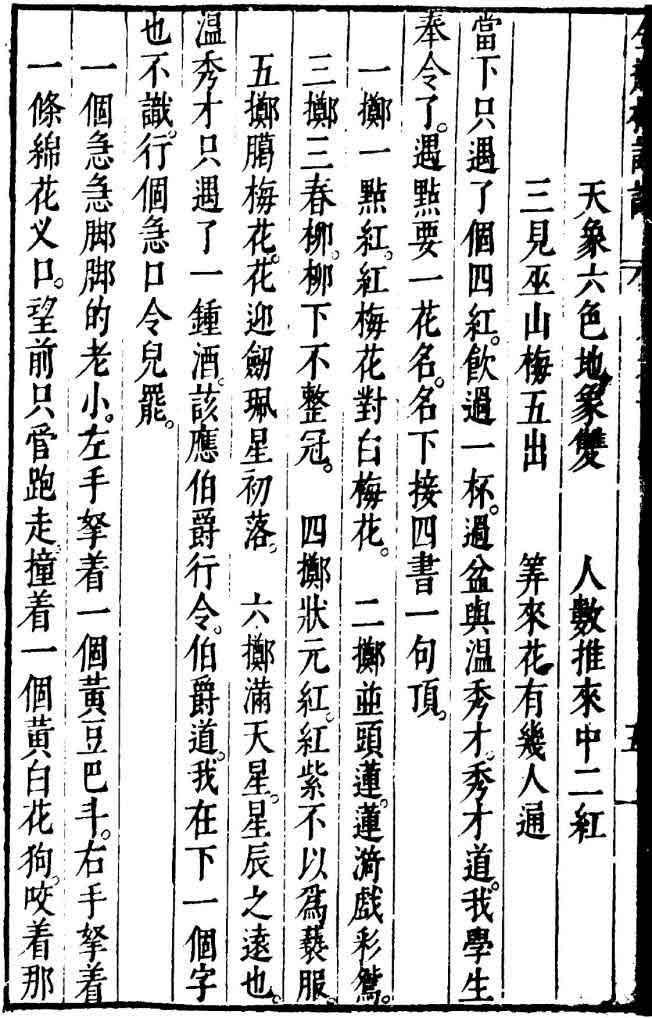 金瓶梅詞話
天象六色地象雙　人數推來中二紅
三見巫山梅五出　筭來花有幾人通
當下只遇了個四紅。飲過一杯。過盆與温秀才。秀才道。我學生
奉令了。遇點要一花名。名下接四書一句頂。
一擲一點紅。紅梅花對白梅花。　二擲並頭蓮。蓮漪戲彩鴛。
三擲三春柳。柳下不整冠。　四擲狀元紅。紅紫不以爲褻服。
五擲臈梅花。花迎劒珮星初落。　六擲滿天星。星辰之遠也。
温秀才只遇了一鍾酒。該應伯爵行令。伯爵道。我在下一個字
也不識。行個急口令兒罷。
一個急急脚脚的老小。左手拏着一個黃豆巴斗。右手拏着
一條綿花叉口。望前只管跑走。撞着一個黃白花狗。咬着那